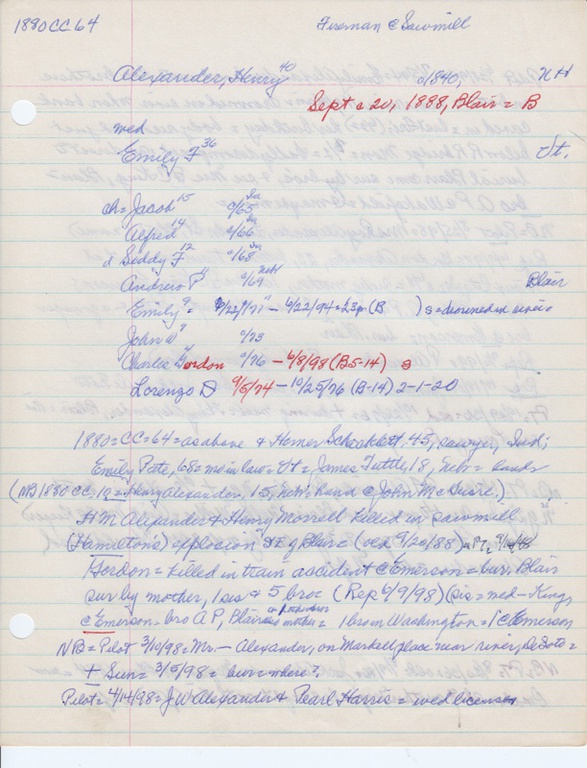 1880 CC 64
Fireman @ Sawmill
Alexander, Henry 40 c1840, NH
Sept c 20, 1888, Blair = B
wed
Emily F 36 Vt.
ch = Jacob 15 c/65 Ia
Alfred 14 c/66 Ia
d Seddy F 12 c/68 Ia
Andrew P 11 c/69 Nebr
Blair
Emily 9 = - 6/22/94 = 23y (B ) s = drowned in river
John W 7 c/73
Charles Gordon c/76 - 6/8/98 (B5-14) s
Lorenzo D 9/5/74 - 10/25/76 (B-14) 2-1-20
1880 = CC = 64 = as above & Homer 45, sawyer, Ind;
Emily Pate, 68 = mo in law = Vt = James Tuttle, 18, Nebr = hand
(NB 1880 CC, 10 = Henry Alexander, 15, Nebr, hand @ John McGuire,)
H M Alexander & Henry Morrell killed in sawmill
(Hamilton's) explosion E of Blair = (ocd 9/20/88)
Gordon = killed in train accident @ Emerson = bur, Blair
sur by mother, 1 sis & 5 bro = (Rep 6/9/98) (sis = wed - King,
@ Emerson = bro A P, Blair mother = 1 bro in Washington = 1 @ Emerson
NB = Pilot 3/10/98 = Mrs - Alexander, on Markell place near river, DeSoto =
+ Sun = 3/5/98 = bur = where?
Pilot = 4/14/98 = J W Alexander & Pearl Harris = wed license